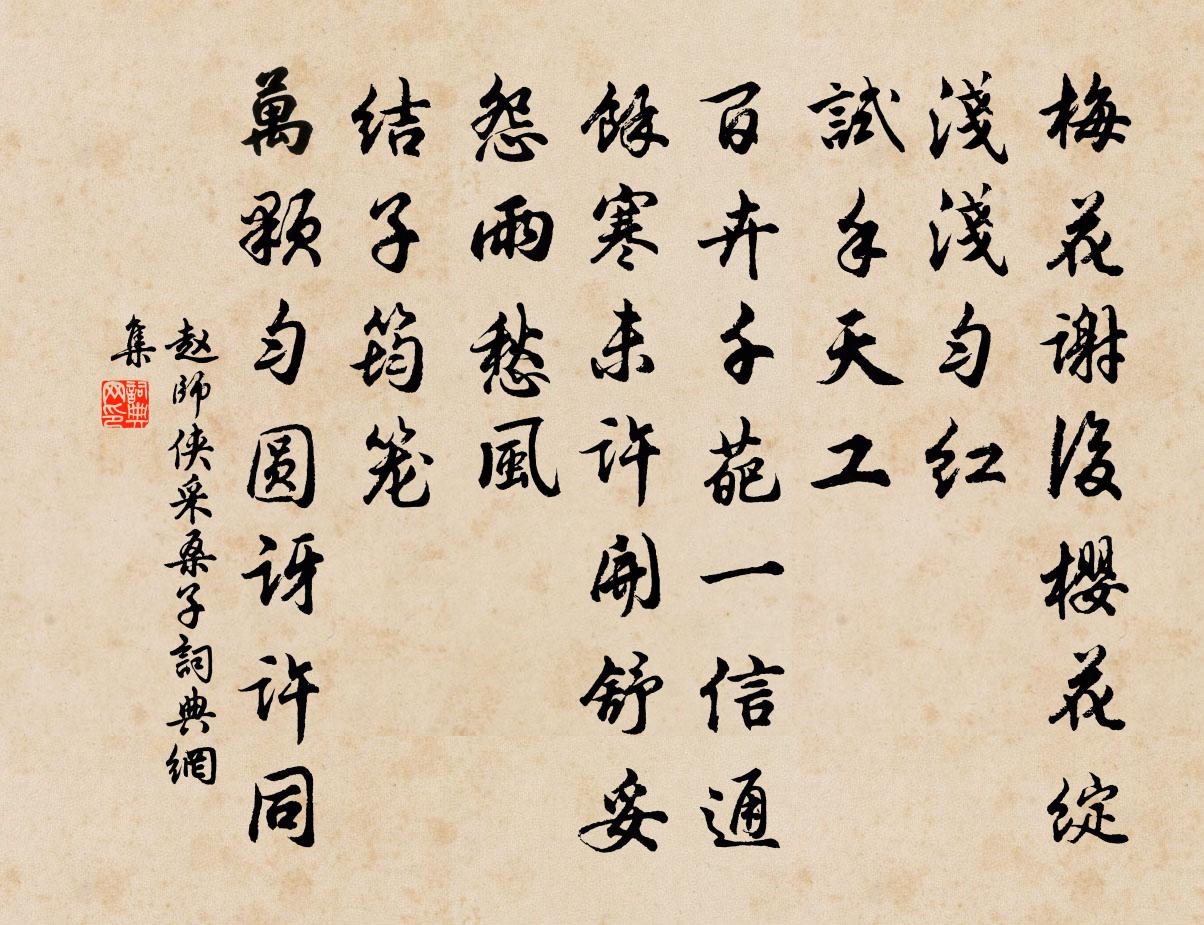 梅花謝後櫻花綻
淺淺勻红
試手天工
百卉千葩一信通
餘寒未许開舒妥
怨雨愁風
结子筠笼
萬顆勻圆訝许同
赵師侠采桑子詞典網
集
詞典
网印